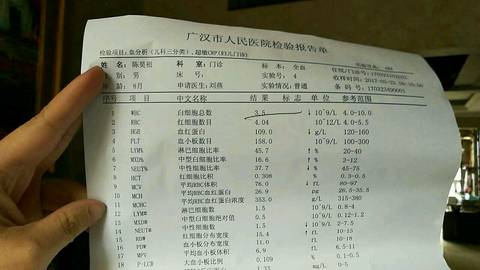 广汉市人民医院检验报告单
检验项目:血分析(儿科三分类),超敏CRP(妇儿门诊)
姓 名:陈昊祖 科 室:门诊 标 本:全血
性 别:男 床 号: 实验号:4
年 龄:8月 申请医生:刘燕 备 注:普通 条码号:170323490003
序号 项目 中文名称 结果 标志 单位 参考范围
1 WBC 白细胞总数 3.5 ↓ 10^9/L 4.0-10.0
2 RBC 红细胞数目 4.04 10^12/L 4.0-5.5
3 HGB 血红蛋白 109.0 ↓ g/L 120-160
4 PLT 血小板数目 158.0 10^9/L 100-300
5 LYM% 淋巴细胞比率 45.7 ↑ % 20-40
6 MXD% 中型白细胞比率 16.6 ↑ % 3-12
7 NEUT% 中性细胞比率 37.7 ↓ % 45-75
8 HCT 红细胞比积 0.308 ↓ % 0.3-0.5
9 MCV 平均RBC体积 76.0 ↓ fL 80-97
10 MCH 平均RBC血红蛋白 26.9 pg 26.5-33.5
11 MCHC 平均RBC血红蛋白浓度 353.0 g/L 315-380
12 LYM# 淋巴细胞数 1.5 10^9/L 0.8-4
13 MXD# 中型白细胞绝对值 0.5 10^9/L 0.12-1.2
14 NEUT# 中性细胞数 1.5 ↓ 10^9/L 2-7.5
15 RDW 红细胞分布宽度 15.4 fL 10-18
16 PDW 血小板分布宽度 11.0 fL
17 MPV 平均血小板体积 6.9 fL
18 P-LCR 大血小板比率 0.109 % 0.1-0.5
1.33 mg/L 0-5